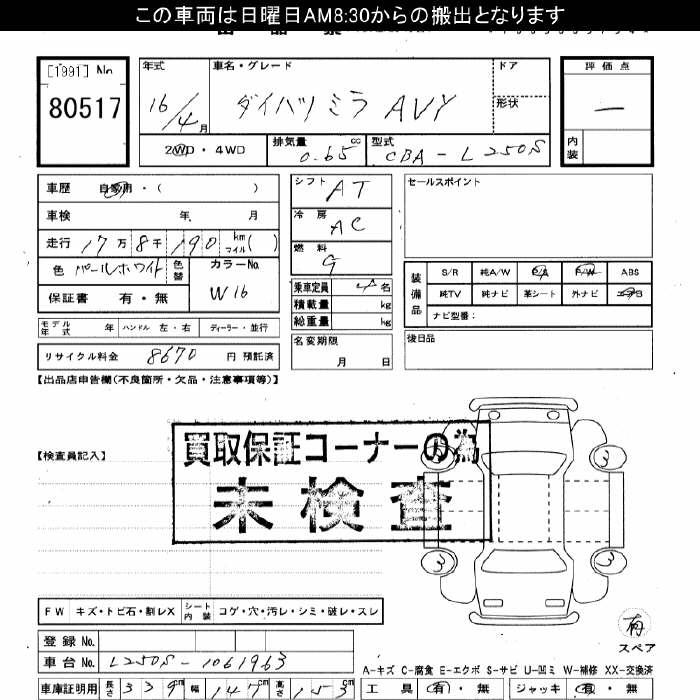 この車両は日曜日AM8:30からの搬出となります
[1991] No
80517
年式 16/4月
車名・グレード ダイハツ ミラ AVY
ドア
形状
評価点 —
内装
2WD・4WD
排気量 0.65 cc
型式 CBA-L250S
車歴 自家用・( )
車検 年 月
走行 17万8千190 km マイル( )
色 パールホワイト 色替
カラーNo. W16
保証書 有・無
モデル年式 年 ハンドル 左・右 ディーラー・並行
リサイクル料金 8670 円 預託済
シフト AT
冷房 AC
燃料 G
乗車定員 4名
積載量 kg
総重量 kg
名変期限 月 日
セールスポイント
装備品
S/R 純A/W P/S P/W ABS
純TV 純ナビ 革シート 外ナビ エアB
ナビ型番:
後日品
【出品店申告欄(不良箇所・欠品・注意事項等)】
【検査員記入】
買取保証コーナーの為
未検査
3 3
3 3
FW キズ・トビ石・割レX シート内装 コゲ・穴・汚レ・シミ・破レ・スレ
有
スペア
登録 No.
車台 No. L250S-1061963
A-キズ C-腐食 E-エクボ S-サビ U-凹ミ W-補修 XX-交換済
車庫証明用 長さ 339cm 幅 147cm 高さ 153cm
工具 有・無 ジャッキ 有・無